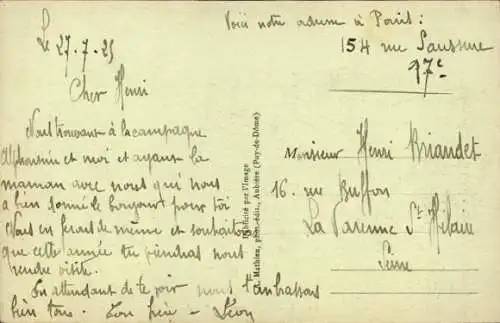 Voici notre adresse à Paris :
154 rue Saussure
17e
Le 27.7.25
Cher Henri
Nous trouvant à la campagne
Alphonsine et moi et ayant la
maman avec nous qui nous
a bien donné le bonjour pour toi
Nous en ferons de même et souhaitons
que cette année tu viendras nous
rendre visite.
En attendant de te voir nous t'embrassons
bien tous. Ton frère - Léon
Publicité par l'Image
G. Mathieu, phot.-édit., Aubière (Puy-de-Dôme)
Monsieur Henri Briandet
16. rue Buffon
La Varenne St Hilaire
Seine